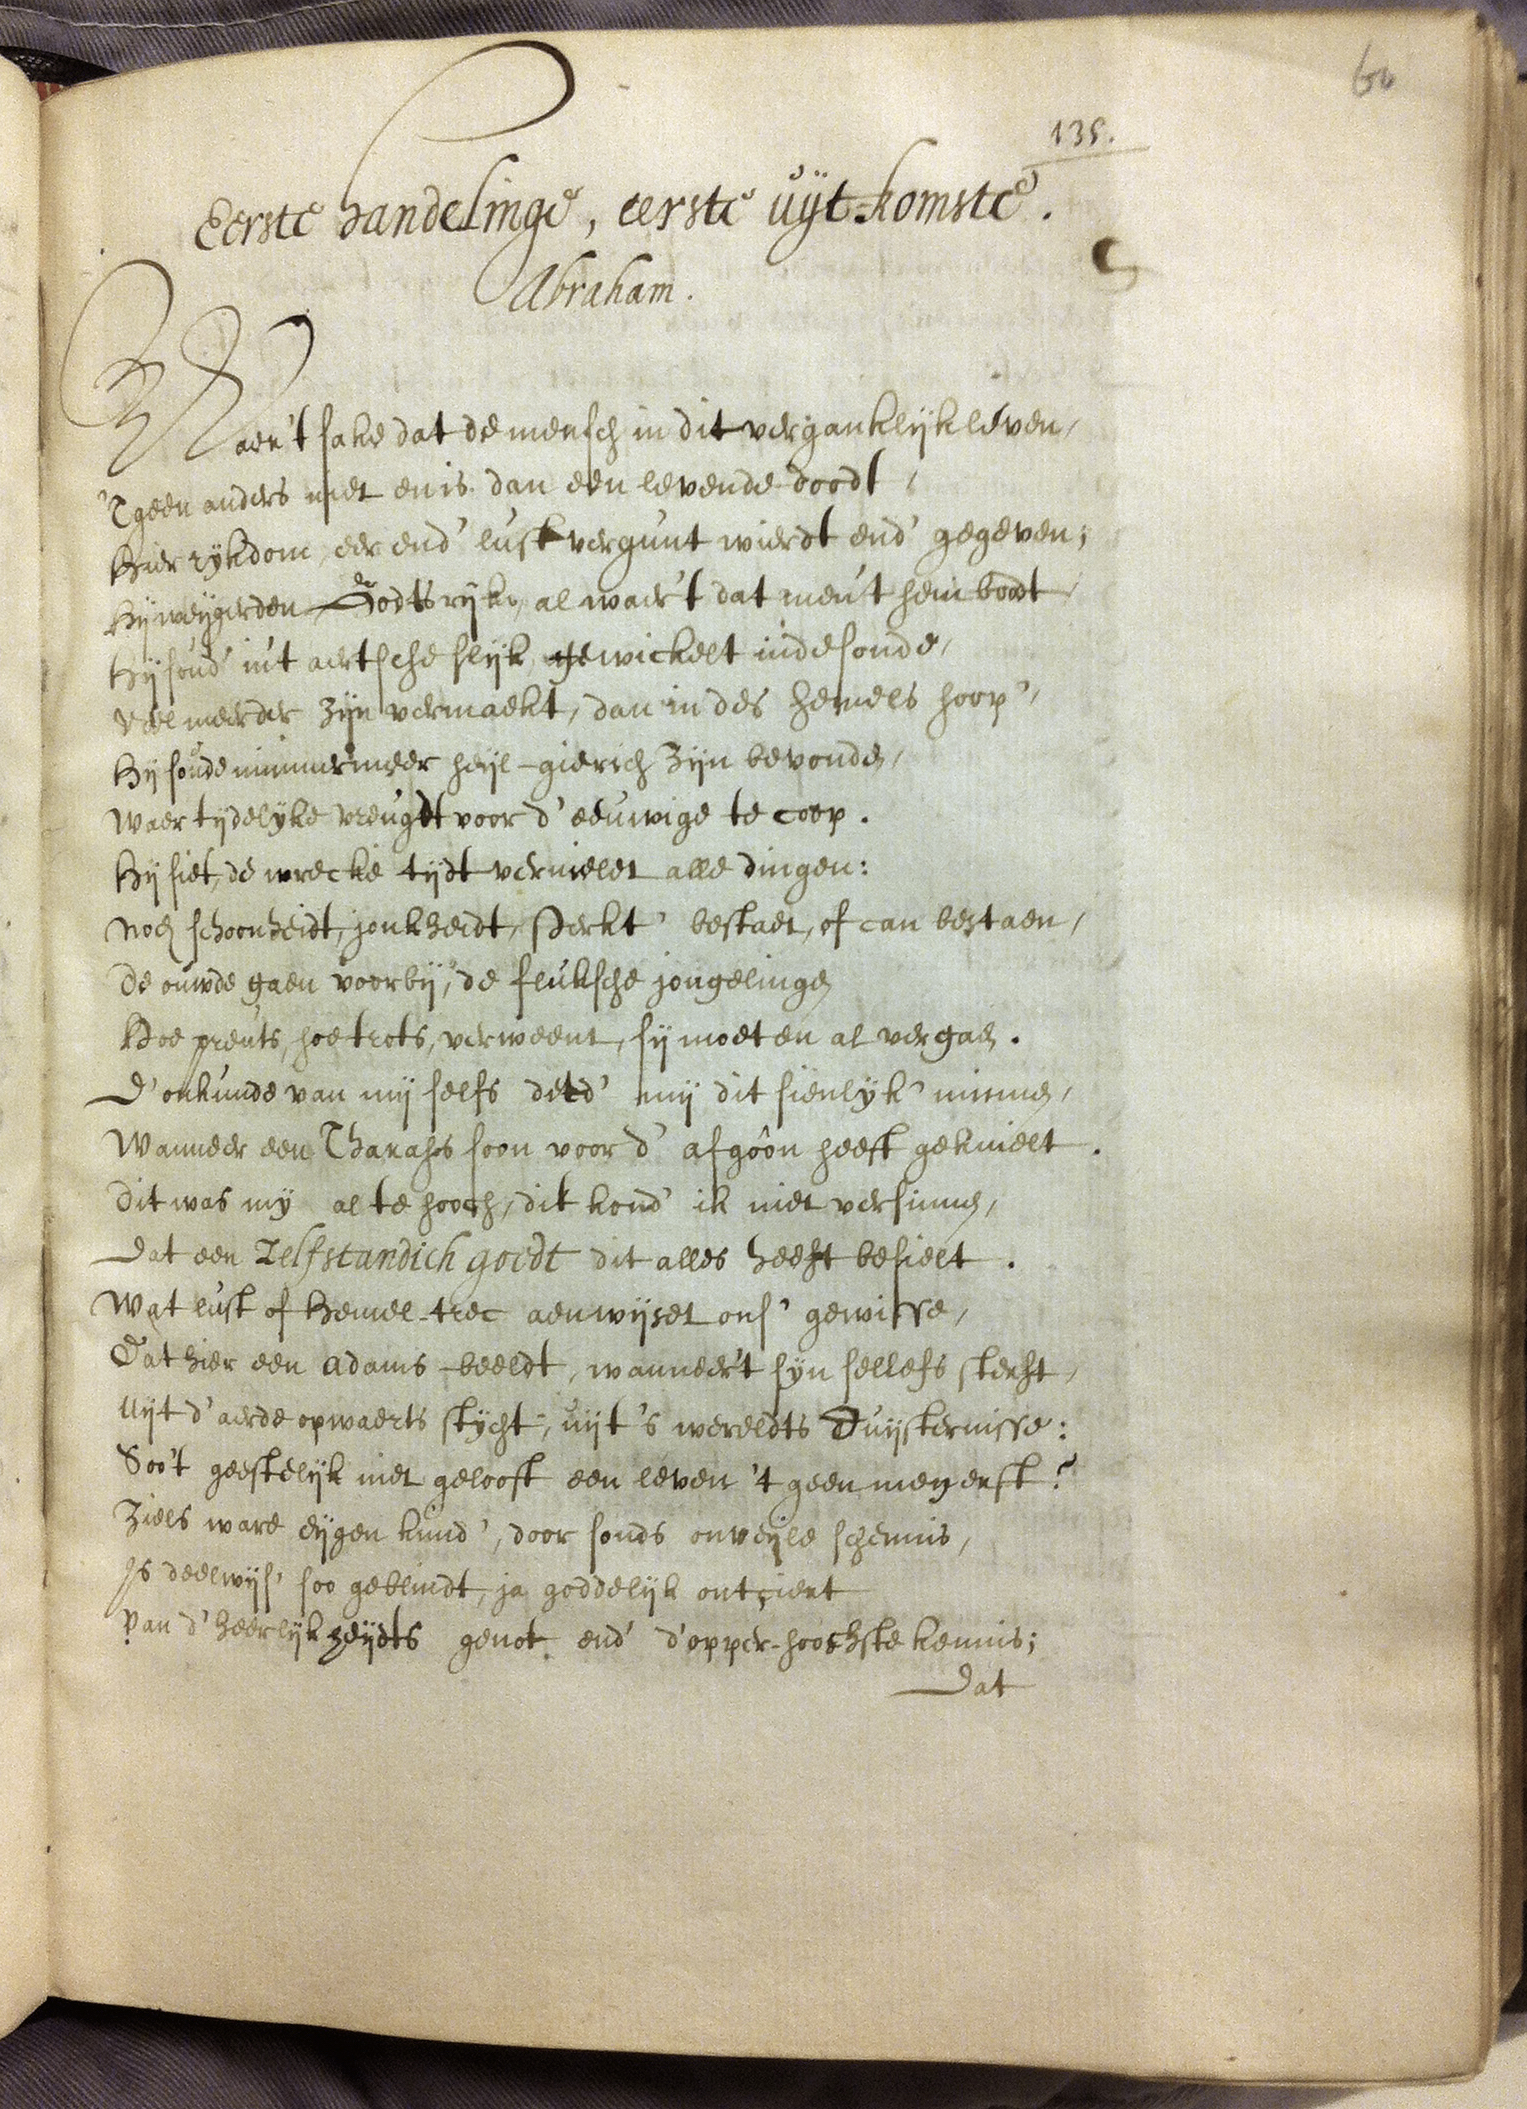 60
135.
Eerste handelinge, eerste uÿt-komste.
Abraham.
Waer't sake dat de mensch in dit verganklijk leven,
'Tgeen anders niet en is dan een levende doodt,
Hier rÿkdom, eer end' lust vergunt wierdt end' gegeven;
Hij weÿgerden Godts rijke, al waer't dat men't hem boodt,
Hij soud' in't aertsche slijk, gewickelt in de sonde,
Veel meerder zijn vermaekt, dan in des hemels hoop',
Hij soude nimmermeer heijl-gierich zijn bevonden,
Waer tijdelijke vreugdt voor d' eeuwige te coop.
Hij siet, de wrecke tijdt vernielet alle dingen:
Noch schoonheidt, jonkheidt, sterkt' bestaet, of can bestaen,
De ouwde gaen voorbij, de fluksche jongelingen
Hoe preuts, hoe trots, verweent, sij moeten al vergaen.
D' onkunde van mij selfs deed' mij dit sienlijk' minnen,
Wanneer een Tharahs soon voor d' afgôon heeft geknielt.
Dit was mÿ al te hooch, dit kond' ik niet versinnen,
Dat een zelfstandich goedt dit alles heeft besielt.
Wat lust of Hemel-trec aenwijset ons' gewisse,
Dat hier een Adams-beeldt, wanneer't sÿn sellefs sterft,
Uijt d' aerde opwaerts stÿcht, uijt 's wereldts Duijsternisse:
Soo't geestelijk niet gelooft een leven 't geen men erft?
Ziels ware eijgen kund', door sonds onveijle schennis,
Is deelwijs' soo geblindt, ja goddelijk ontçiert
Van d' heerlijkheijdts genot end' d'opper-hoochste kennis;
Dat